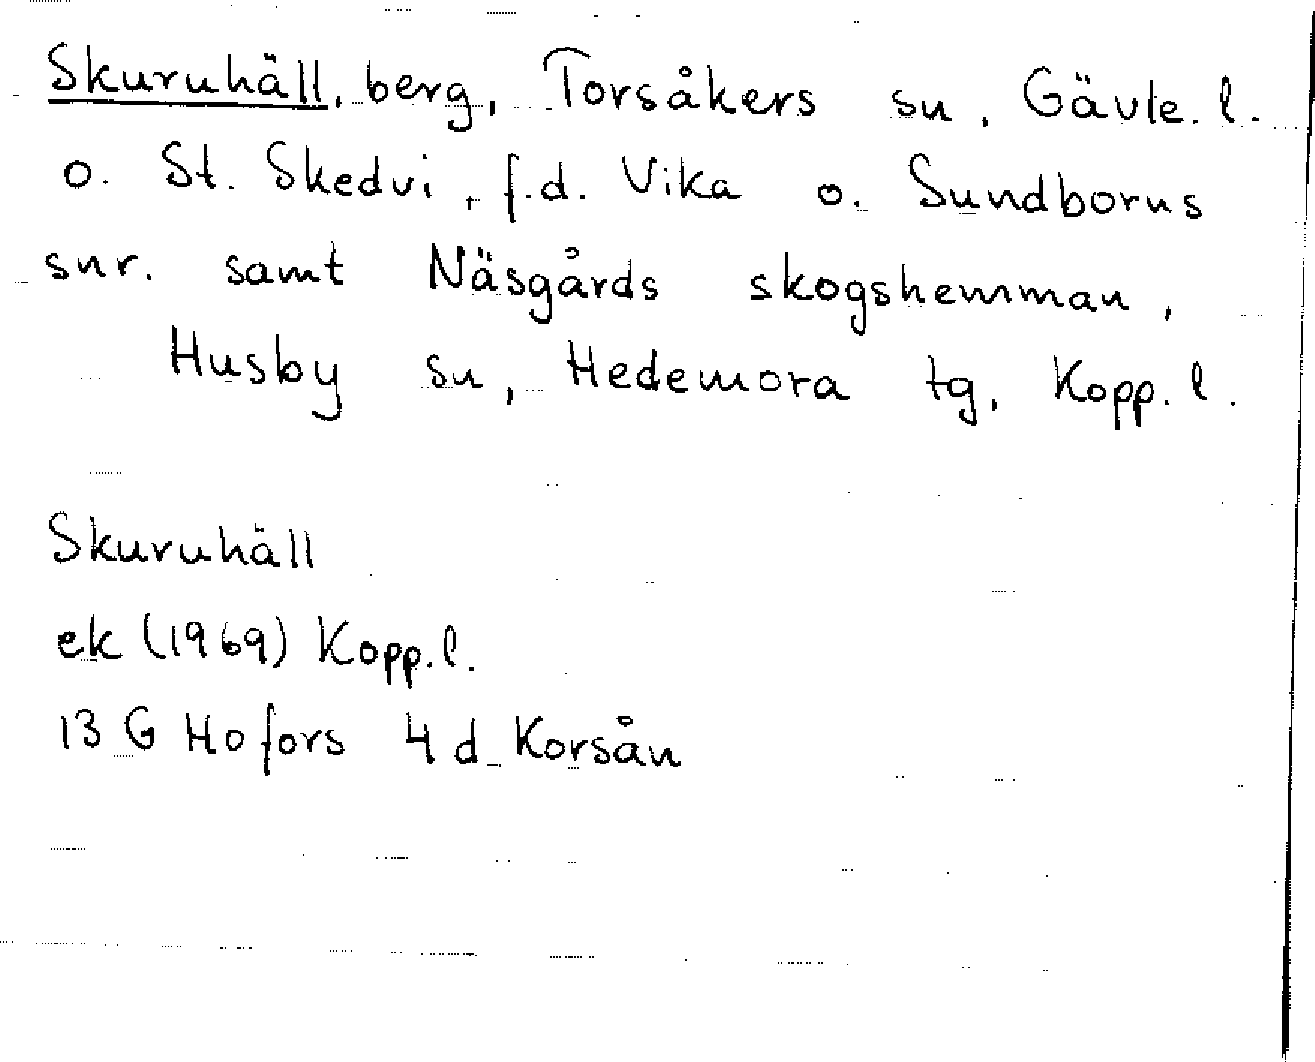 Skuruhäll, berg, Torsåkers sn, Gävle. l.
o. St. Skedvi, f.d. Vika o. Sundborns
snr. samt Näsgårds skogshemman,
Husby sn, Hedemora tg, Kopp. l.
Skuruhäll
ek (1969) Kopp. l.
13 G Hofors 4 d Korsån